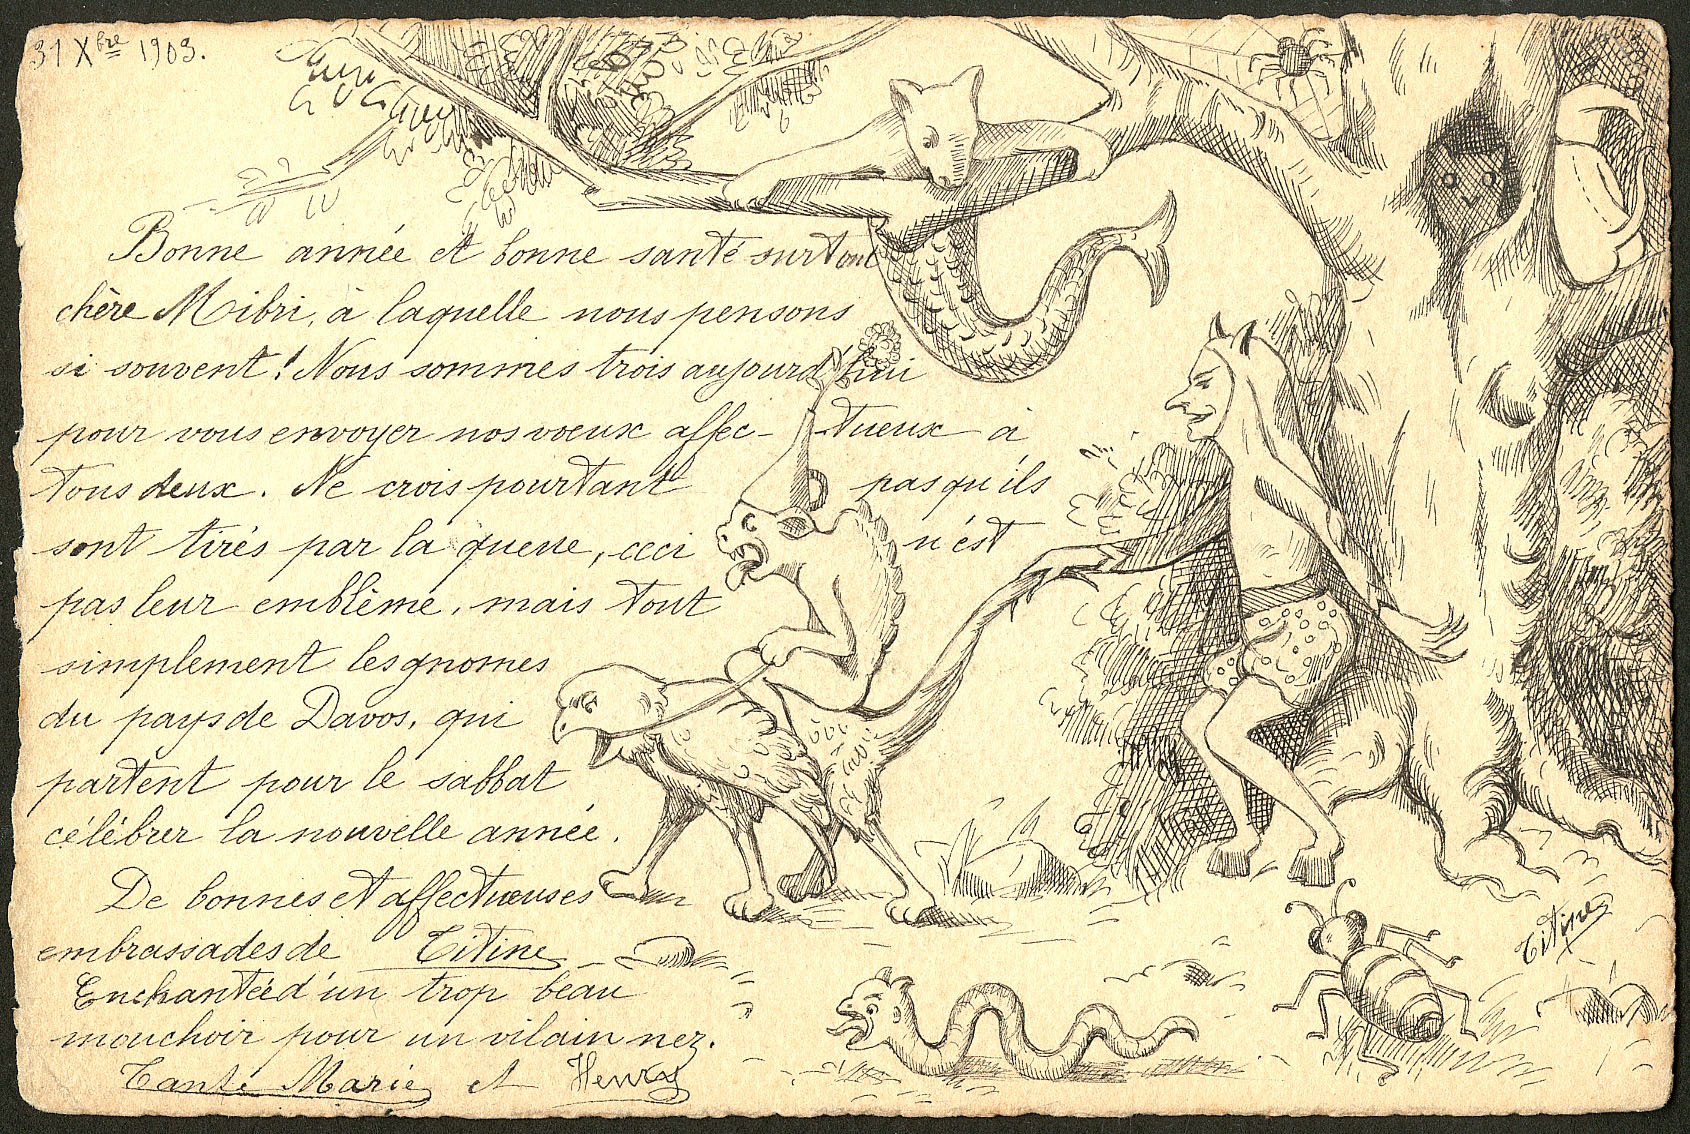 31 Xbre 1903.
Bonne année et bonne santé surtout
chère Mibri, à laquelle nous pensons
si souvent! Nous sommes trois aujourd'hui
pour vous envoyer nos voeux affec- tueux à
tous deux. Ne crois pourtant pas qu'ils
sont tirés par la queue, ceci n'est
pas leur emblême, mais tout
simplement les gnomes
du pays de Davos, qui
partent pour le sabbat
célébrer la nouvelle année.
De bonnes et affectueuses
embrassades de Titine
Enchantée d'un trop beau
mouchoir pour un vilain nez.
Tante Marie et Henry
Titine